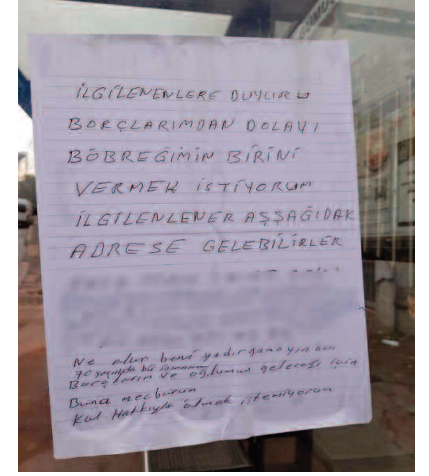 İLGİLENENLERE DUYURU
BORÇLARIMDAN DOLAYI
BÖBREĞİMİN BİRİNİ
VERMEK İSTİYORUM
İLGİLENLENER AŞŞAĞIDAK
ADRESE GELEBİLİRLER
Ne olur beni yadırgamayın ben
70 yaşında bir
Borçlarım ve oğlumun geleceği için
Buna mecburum
Kul Hakkıyla ölmek istemiyorum